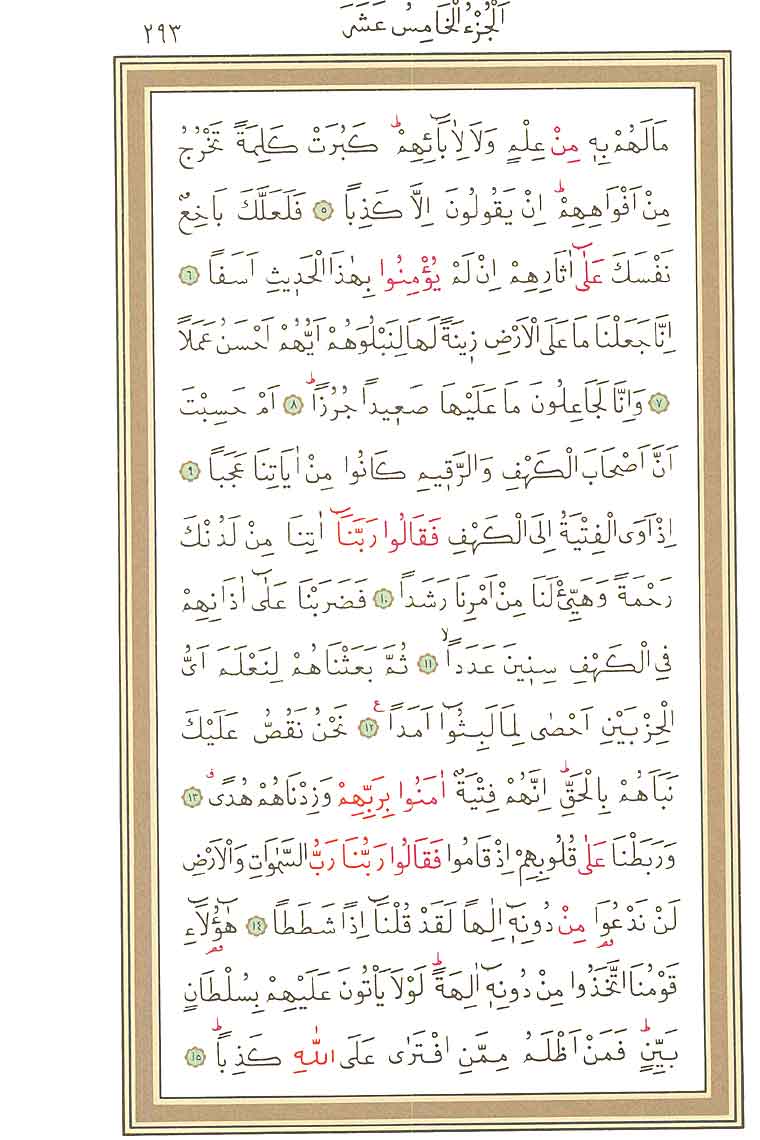 اَلْجُزْءُ الْخَامِسُ عَشَرَ ٢٩٣
مَالَهُمْ بِه۪ مِنْ عِلْمٍ وَلَا لِاٰبَٓائِهِمْۜ كَبُرَتْ كَلِمَةً تَخْرُجُ
مِنْ اَفْوَاهِهِمْۜ اِنْ يَقُولُونَ اِلَّا كَذِباً ﴿٥﴾ فَلَعَلَّكَ بَاخِعٌ
نَفْسَكَ عَلٰٓى اٰثَارِهِمْ اِنْ لَمْ يُؤْمِنُوا بِهٰذَا الْحَد۪يثِ اَسَفاً ﴿٦﴾
اِنَّا جَعَلْنَا مَا عَلَى الْاَرْضِ ز۪ينَةً لَهَا لِنَبْلُوَهُمْ اَيُّهُمْ اَحْسَنُ عَمَلاً
﴿٧﴾ وَاِنَّا لَجَاعِلُونَ مَا عَلَيْهَا صَع۪يداً جُرُزاًۜ ﴿٨﴾ اَمْ حَسِبْتَ
اَنَّ اَصْحَابَ الْكَهْفِ وَالرَّق۪يمِ كَانُوا مِنْ اٰيَاتِنَا عَجَباً ﴿٩﴾
اِذْ اَوَى الْفِتْيَةُ اِلَى الْكَهْفِ فَقَالُوا رَبَّنَٓا اٰتِنَا مِنْ لَدُنْكَ
رَحْمَةً وَهَيِّئْ لَنَا مِنْ اَمْرِنَا رَشَداً ﴿١٠﴾ فَضَرَبْنَا عَلٰٓى اٰذَانِهِمْ
فِي الْكَهْفِ سِن۪ينَ عَدَداًۙ ﴿١١﴾ ثُمَّ بَعَثْنَاهُمْ لِنَعْلَمَ اَيُّ
الْحِزْبَيْنِ اَحْصٰى لِمَا لَبِثُٓوا اَمَداً۟ ﴿١٢﴾ نَحْنُ نَقُصُّ عَلَيْكَ
نَبَاَهُمْ بِالْحَقِّۜ اِنَّهُمْ فِتْيَةٌ اٰمَنُوا بِرَبِّهِمْ وَزِدْنَاهُمْ هُدًىۗ ﴿١٣﴾
وَرَبَطْنَا عَلٰى قُلُوبِهِمْ اِذْ قَامُوا فَقَالُوا رَبُّنَا رَبُّ السَّمٰوَاتِ وَالْاَرْضِ
لَنْ نَدْعُوَ۬ا مِنْ دُونِه۪ٓ اِلٰهاً لَقَدْ قُلْنَٓا اِذاً شَطَطاً ﴿١٤﴾ هٰٓؤُ۬لَٓاءِ
قَوْمُنَا اتَّخَذُوا مِنْ دُونِه۪ٓ اٰلِهَةًۜ لَوْلَا يَأْتُونَ عَلَيْهِمْ بِسُلْطَانٍ
بَيِّنٍۜ فَمَنْ اَظْلَمُ مِمَّنِ افْتَرٰى عَلَى اللّٰهِ كَذِباًۜ ﴿١٥﴾